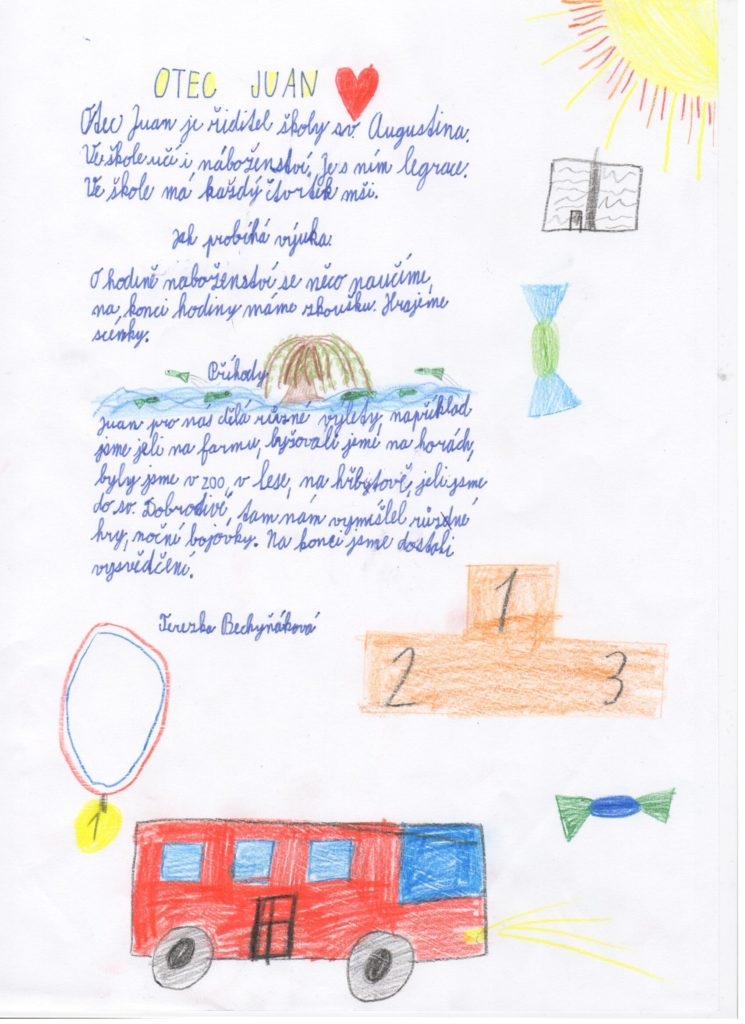 OTEC JUAN
Otec Juan je řiditel školy sv. Augustina.
Ve škole učí i náboženství. Je s ním legrace.
Ve škole má každý čtvrtek mši.
Jak probíhá výuka:
O hodině naboženství se něco naučíme,
na konci hodiny máme zkoušku. Hrajeme
scénky.
Příhody
Juan pro nás dělá různé výlety, například
jsme jeli na farmu, byli jsme v zoo, v lese, na hřbitově, jeli jsme
do sv. Dobrotivé, tam nám vymíšlel různé
hry, noční bojovky. Na konci jsme dostali
vysvědčení.
Terezka Bechyňáková
1
2
3
1